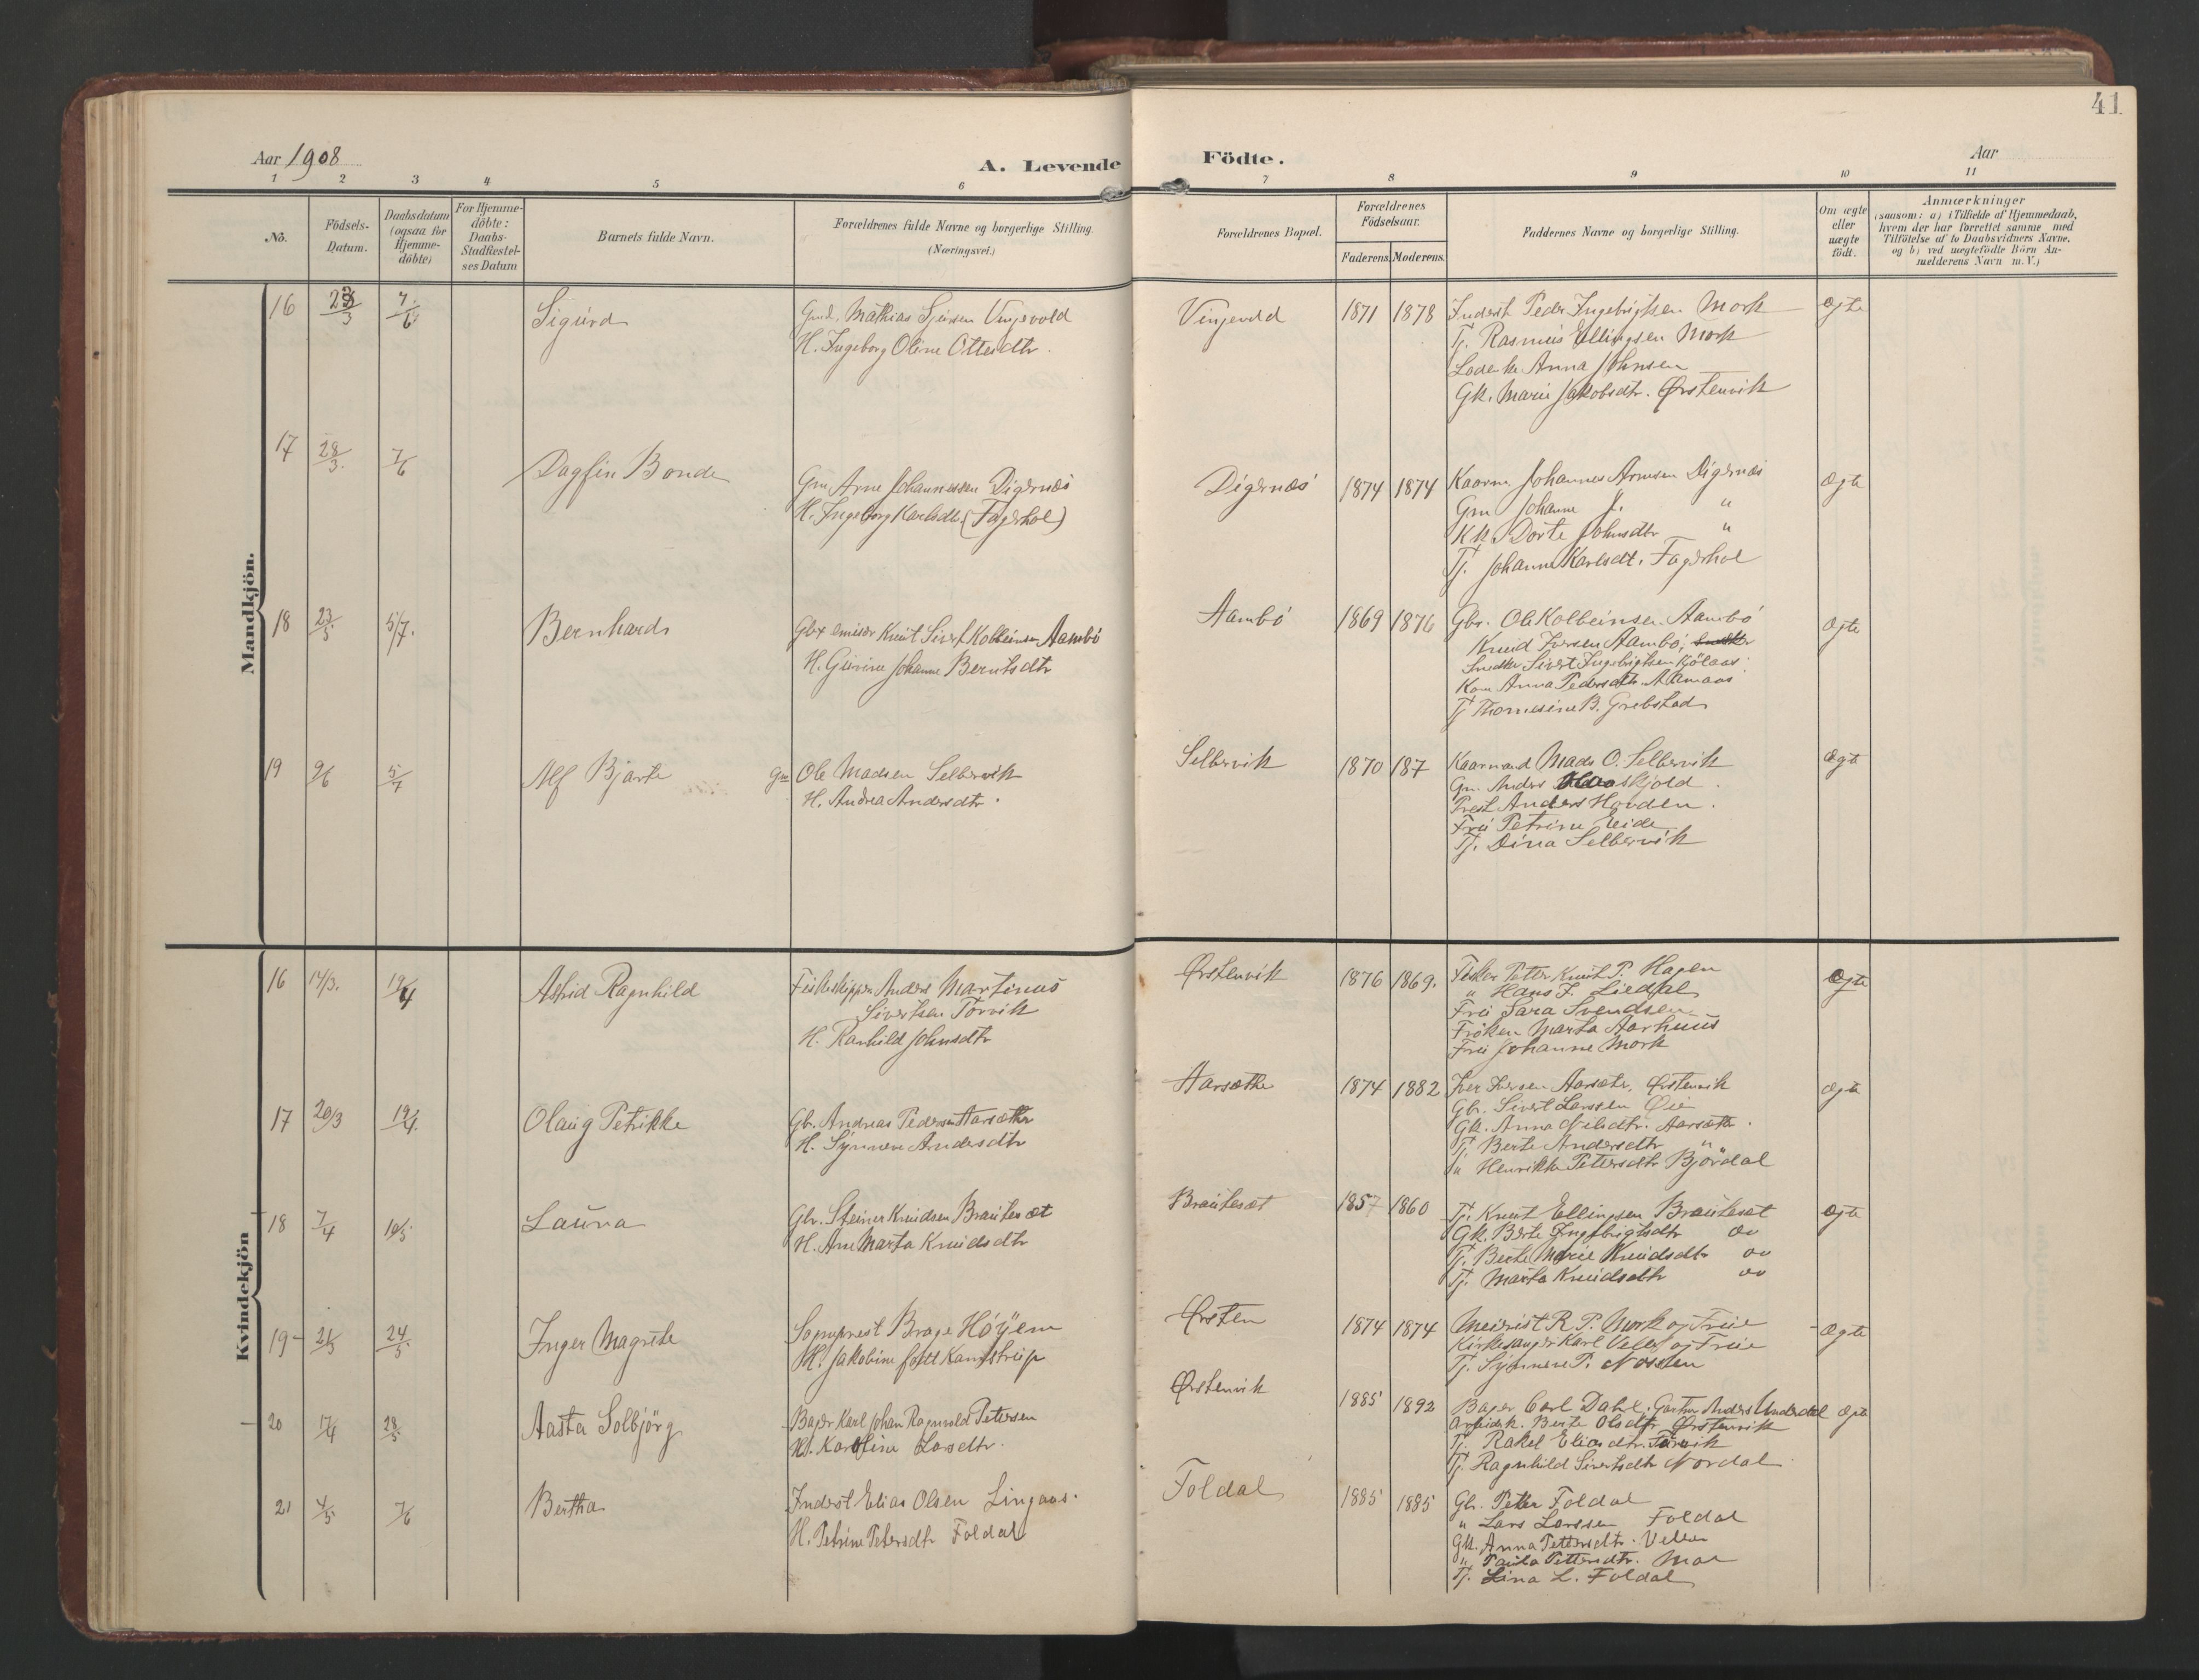 41
Aar 1908
A. Levende Födte.
Aar
1 2 3 4 5 6 7 8 9 10 11
No.
Födsels-Datum.
Daabsdatum (ogsaa for Hjemme-döbte)
For Hjemme-döbte: Daabs-Stadfæstel-ses Datum
Barnets fulde Navn.
Forældrenes fulde Navne og borgerlige Stilling.
(Næringsvei.)
Forældrenes Bopæl.
Forældrenes Födselsaar.
Faderens. Moderens.
Faddernes Navne og borgerlige Stilling.
Om ægte eller uægte födt.
Anmærkninger
(saasom: a) i Tilfælde af Hjemmedaab,
hvem der har forrettet samme med
Tilföielse af to Daabsvidners Navne,
og b) ved uægtefödte Börn An-
melderens Navn m. V.)
Mandkjön.
16 7/6 Sigurd
Gmd. Mathias Vingevold
H. Ingeborg Oline Ottesdtr.
Vingevold 1871 1878
Inderst Peder Ingebrigtsen Mork
Tj. Rasmus Ellingsen Mork
Anna Johnsen
Gk. Marie Jakobsdtr. Ørstenvik
Ægte
17 28/3. 7/6 Dagfin Bonde
Gm. Arne Johannessen Digernæs
H. Ingeborg Karlsdtr (Fagerhol)
Digernæs 1874 1874
Kaarm. Johannes Arnesen Digernæs
Gm Johanne J. "
Kk. Dorte Johnsdtr "
Tj. Johanne Karlsdt. Fagerhol
Ægte
18 23/5. 5/7. Bernhard
Gbr emisær Knut Sivert Kolbeinsen Aambö
H. Gurine Johanne Berntsdtr
Aambö 1869 1876
Gbr. Ole Kolbeinsen Aambö
Knud Iversen Aambö,
Snedker Sivert Ingebrigtsen Kjölaas
Kone Anna Pedersdtr. Aamaas
Tj Thomesine B. Grebstad
Ægte
19 9/6 5/7 Alf Bjarte
Gm Ole Madsen Selbervik
H. Andrea Andersdtr.
Selbervik 1870 187
Kaarmand Mads O. Selbervik
Gm. Anders
Prest Anders Hovden.
Fru Petrine Eide
Tj. Dina Selbervik
Ægte
Kvindekjön
16 14/3. 19/4 Astrid Ragnhild
Fiskeskipper Anders Martinus
Sivertsen Torvik
H. Ranhild Johnsdtr
Ørstenvik 1876 1869.
Fisker Petter Knut P. Hagen
" Hans J. Liedal
Fru Sara Svendsen
Fröken Marta Aarhuus
Fru Johanne Mork
Ægte
17 20/3 19/4. Olaug Petrikke
Gbr. Andreas Pedersen Aarsæther
H. Synnöve Andersdtr
Aarsæthe 1874 1882
Iver Iversen Aarsæter, Ørstenvik
Gbr. Sivert Larssen Øie
Gk. Anna Nilsdtr. Aarsæth.
Tj. Berte Andersdtr "
" Henrikke Petersdtr Björdal
Ægte
18 7/4 10/5 Laura
Gbr. Steiner Knudsen Brautesæt
H. Ane Marta Knudsdtr
Brautesæt 1857 1860
Tj. Knut Ellingsen Brautesæt
Gk. Berte Ingebrigtsdtr do
Tj. Berte Marie Knudsdtr do
Tj. Marta Knudsdtr do
Ægte
19 21/3 24/5. Inger Magrete
Sogneprest Brage Höyem
H. Jakobine født Kamstrup
Ørsten 1874 1874
Meierist R. P. Mork og Frue
Kirkesanger Karl Velle og Frue
Tj. Synnöve P. Nossen
Ægte
20 17/4 28/5. Aasta Solbjörg
Bager Karl Johan Ragnvald Petersen
H. Karoline Larsdtr.
Ørstenvik 1885 1892
Bager Carl Dahl, Gartner Anders Underdal
Arbeidsk. Berte Olsdtr Ørstenvik
Tj. Rakel Eliasdtr. Torvik
Tj. Ragnhild Sivertsdtr Nordal
Ægte
21 4/5 7/6 Bertha
Inderst Elias Olsen Lingaas.
H. Petrine Petersdtr Foldal
Foldal 1885 1885
Gbr. Petter Foldal
" Lars Larssen Foldal
Gk. Anna Pettersdtr. Velle
" Paula Pettersdtr. Moe
Tj. Lina L. Foldal